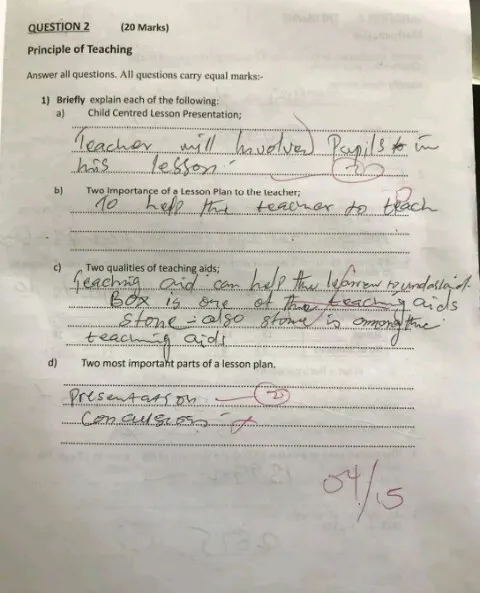 QUESTION 2 (20 Marks)
Principle of Teaching
Answer all questions. All questions carry equal marks:-
1) Briefly explain each of the following:
a) Child Centred Lesson Presentation;
Teacher will Involved Pupils to in
his lesson.
b) Two Importance of a Lesson Plan to the teacher;
To help the teacher to teach
c) Two qualities of teaching aids;
Teaching aid can help the
BOX is one of the teaching aids
Stone - also stone is among the
teaching aids
d) Two most important parts of a lesson plan.
Presentation 2
Conclusion
04/15